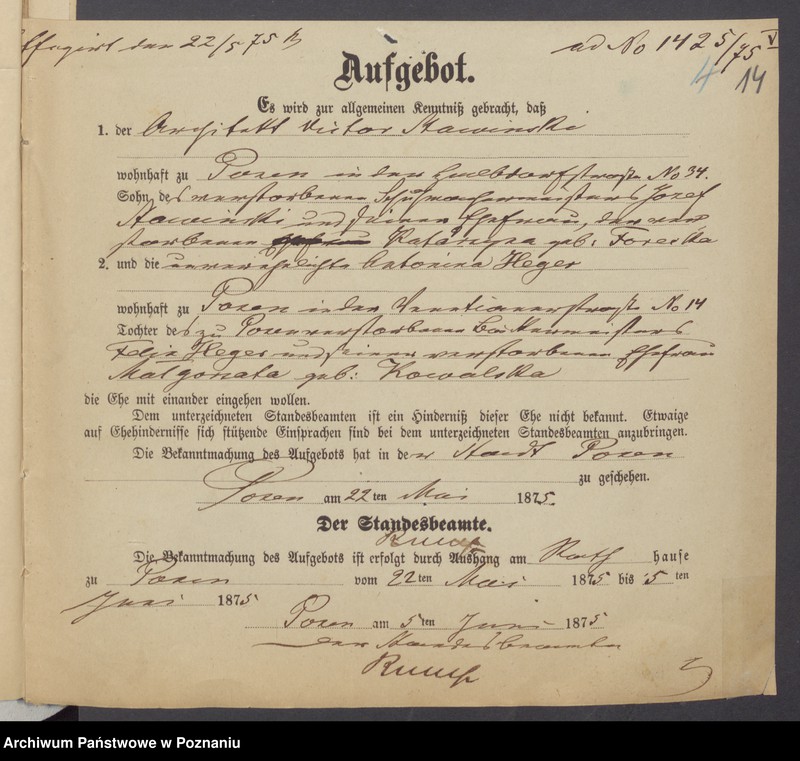 Affigirt den 22/5 75
ad No 1425/75 V
4 14
Aufgebot.
Es wird zur allgemeinen Kenntniß gebracht, daß
1. der Architekt Victor Stawinski
wohnhaft zu Posen in der Halbdorfstraße No 34.
Sohn des verstorbenen Schuhmachermeisters Josef
Stawinski und seiner Ehefrau, der ver
storbenen Katarzyna geb: Forecka
2. und die unverehelichte Antonina Heger
wohnhaft zu Posen in der Venetianerstraße No 14
Tochter des zu Posen verstorbenen Bäckermeisters
Felix Heger und seiner verstorbenen Ehefrau
Małgorzata geb: Kowalska
die Ehe mit einander eingehen wollen.
Dem unterzeichneten Standesbeamten ist ein Hinderniß dieser Ehe nicht bekannt. Etwaige
auf Ehehindernisse sich stützende Einsprachen sind bei dem unterzeichneten Standesbeamten anzubringen.
Die Bekanntmachung des Aufgebots hat in der Stadt Posen
zu geschehen.
Posen am 22ten Mai 1875.
Der Standesbeamte.
Die Bekanntmachung des Aufgebots ist erfolgt durch Aushang am Rath hause
zu Posen vom 22ten Mai 1875 bis 5ten
Juni 1875
Posen am 5ten Juni 1875
der Standesbeamte
Archiwum Państwowe w Poznaniu